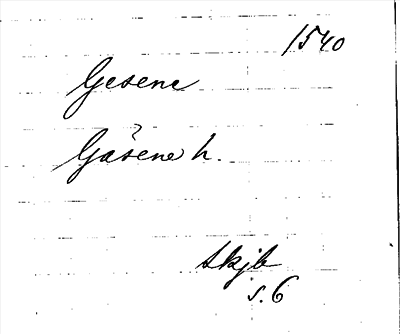 1540
Gesene
Gåsene h.
skjb
s. 6